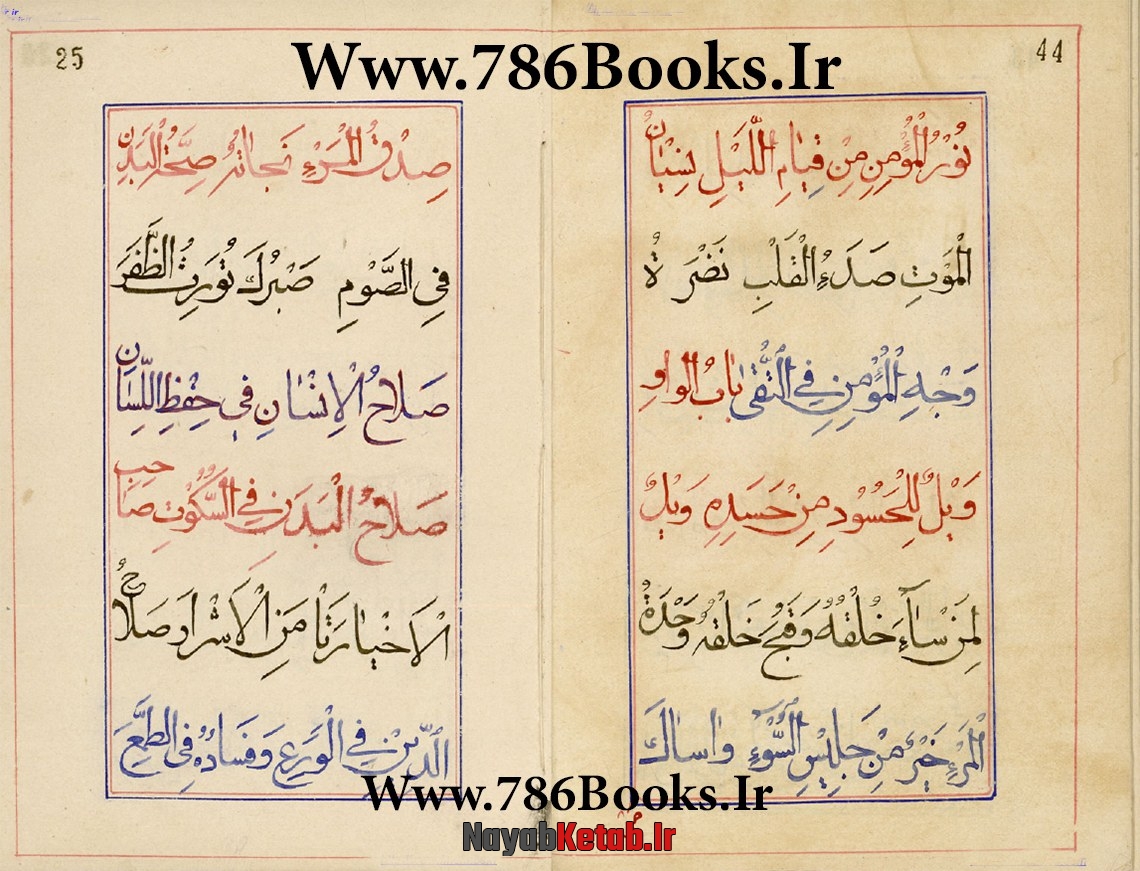 Www.786Books.Ir
44
نُوْرُ الْمُؤْمِنِ مِنْ قِيَامِ اللَّيْلِ نِسْيَانُ
الْمَوْتِ صَدَءُ الْقَلْبِ نَضْرَةُ
وَجْهِ الْمُؤْمِنِ فِي التُّقٰى بَابُ الواوِ
وَيْلٌ لِلْحَسُوْدِ مِنْ حَسَدِهِ وَيْلٌ
لِمَنْ سَآءَ خُلْقُهُ وَقَبُحَ خَلْقُهُ وَحْدَةُ
الْمَرْءِ خَيْرٌ مِنْ جَلِيْسِ السُّوْءِ وَاسَاكَ
25
صِدْقُ الْمَرْءِ نَجَاتُهُ صِحَّةُ الْبَدَنِ
فِي الصَّوْمِ صَبْرُكَ تُوْرِثُ الظَّفَرَ
صَلَاحُ الْاِنْسَانِ فِي حِفْظِ اللِّسَانِ
صَلَاحُ الْبَدَنِ فِي السُّكُوْتِ صَاحِبِ
الْاَخْيَارَ تَا مَنَ الْاَشْرَارَ صَلَاحُ
الدِّيْنِ فِي الْوَرَعِ وَفَسَادُهُ فِي الطَّمَعِ
Www.786Books.Ir
NayabKetab.Ir